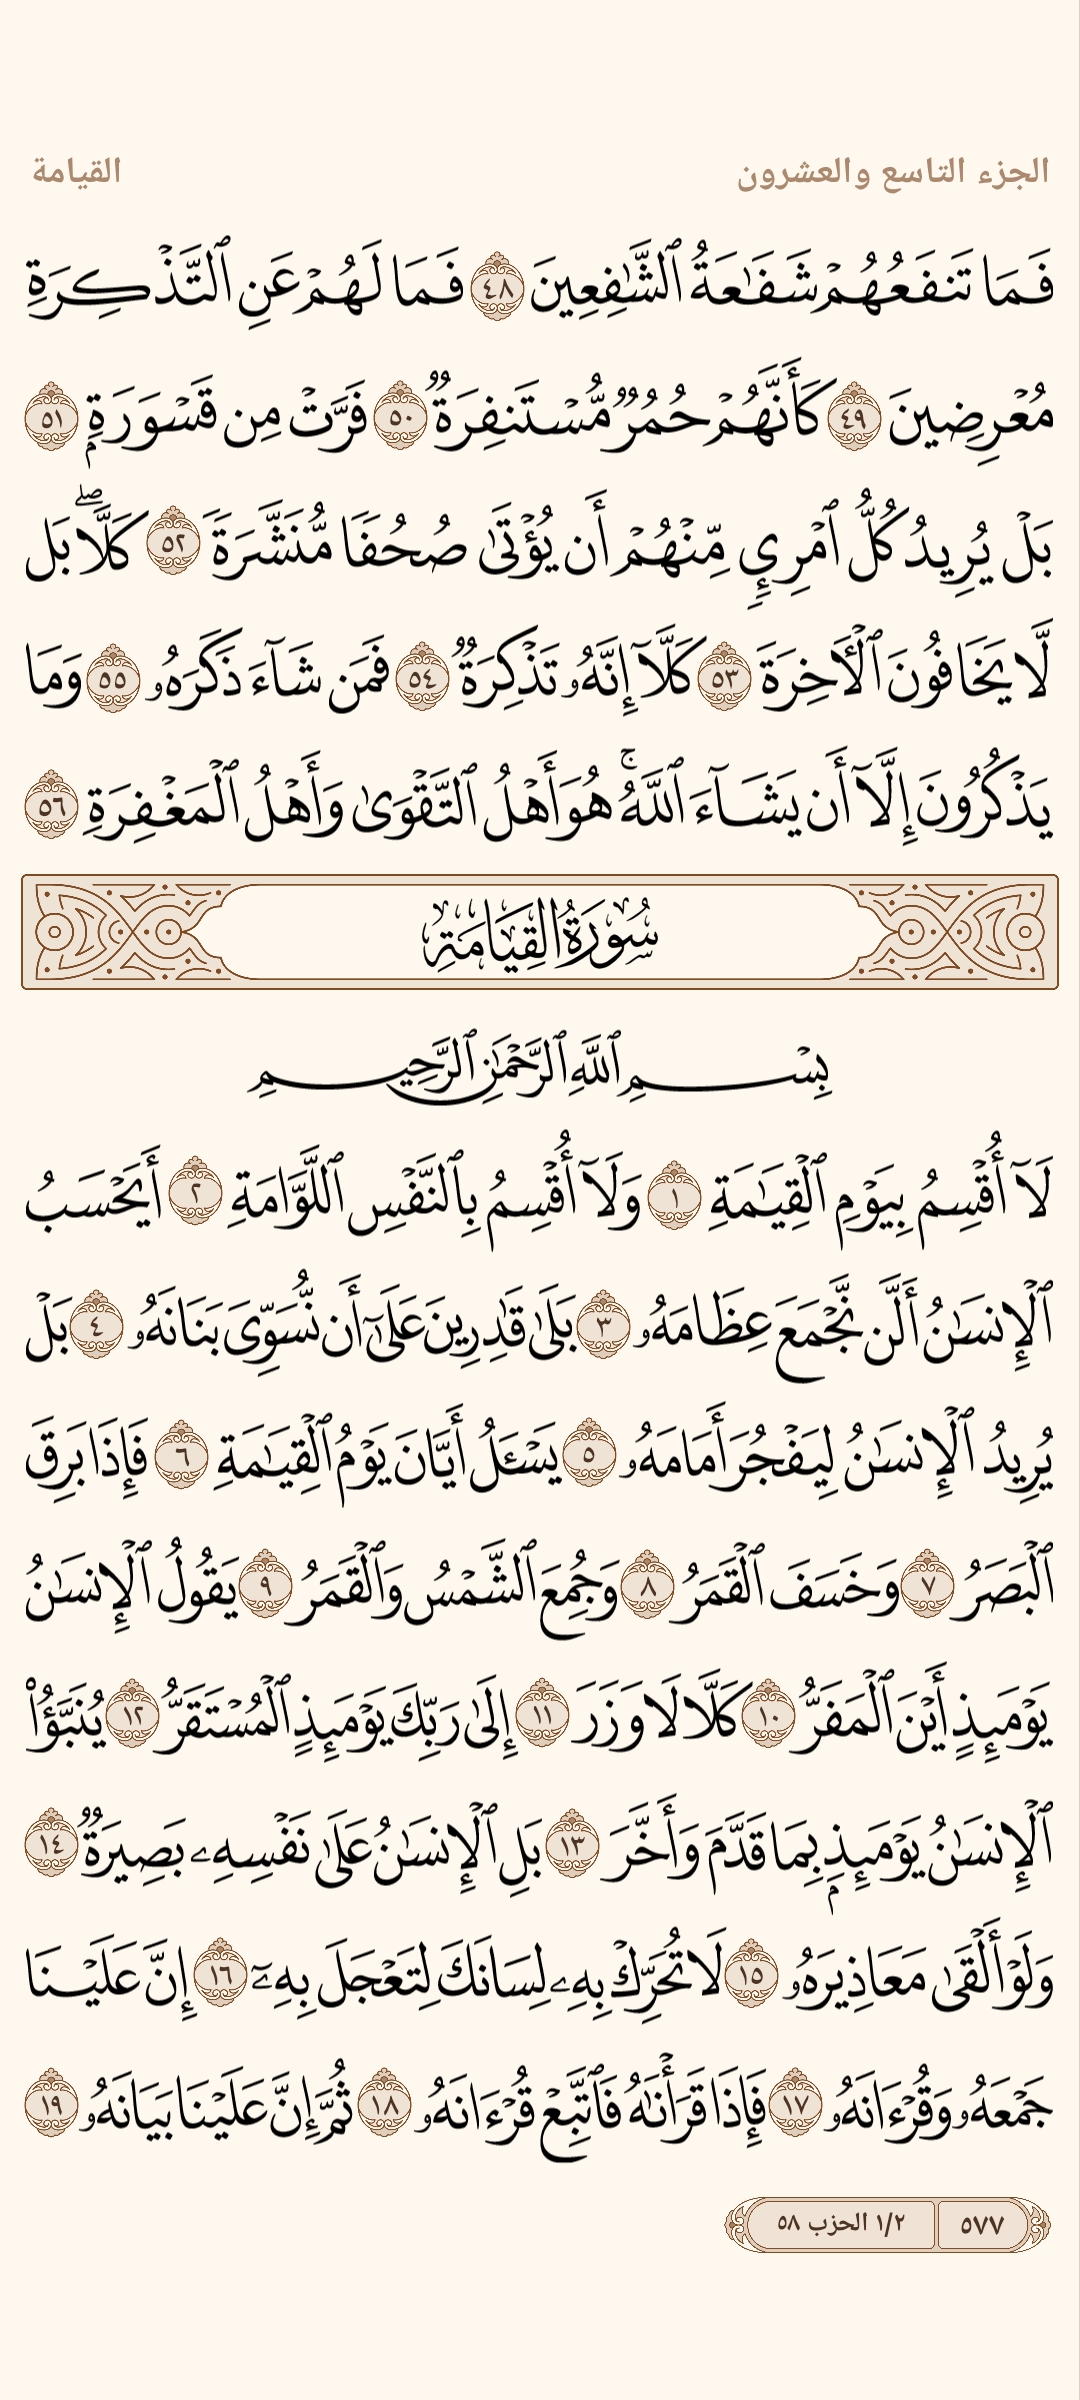 الجزء التاسع والعشرون
القيامة
فَمَا تَنفَعُهُمْ شَفَٰعَةُ ٱلشَّٰفِعِينَ ٤٨ فَمَا لَهُمْ عَنِ ٱلتَّذْكِرَةِ
مُعْرِضِينَ ٤٩ كَأَنَّهُمْ حُمُرٌ مُّسْتَنفِرَةٌ ٥٠ فَرَّتْ مِن قَسْوَرَةٍۭ ٥١
بَلْ يُرِيدُ كُلُّ ٱمْرِئٍ مِّنْهُمْ أَن يُؤْتَىٰ صُحُفًا مُّنَشَّرَةً ٥٢ كَلَّاۖ بَل
لَّا يَخَافُونَ ٱلْأَخِرَةَ ٥٣ كَلَّآ إِنَّهُۥ تَذْكِرَةٌ ٥٤ فَمَن شَآءَ ذَكَرَهُۥ ٥٥ وَمَا
يَذْكُرُونَ إِلَّآ أَن يَشَآءَ ٱللَّهُۚ هُوَ أَهْلُ ٱلتَّقْوَىٰ وَأَهْلُ ٱلْمَغْفِرَةِ ٥٦
سُورَةُ القِيَامَةِ
بِسْمِ ٱللَّهِ ٱلرَّحْمَٰنِ ٱلرَّحِيمِ
لَآ أُقْسِمُ بِيَوْمِ ٱلْقِيَٰمَةِ ١ وَلَآ أُقْسِمُ بِٱلنَّفْسِ ٱللَّوَّامَةِ ٢ أَيَحْسَبُ
ٱلْإِنسَٰنُ أَلَّن نَّجْمَعَ عِظَامَهُۥ ٣ بَلَىٰ قَٰدِرِينَ عَلَىٰٓ أَن نُّسَوِّىَ بَنَانَهُۥ ٤ بَلْ
يُرِيدُ ٱلْإِنسَٰنُ لِيَفْجُرَ أَمَامَهُۥ ٥ يَسْـَٔلُ أَيَّانَ يَوْمُ ٱلْقِيَٰمَةِ ٦ فَإِذَا بَرِقَ
ٱلْبَصَرُ ٧ وَخَسَفَ ٱلْقَمَرُ ٨ وَجُمِعَ ٱلشَّمْسُ وَٱلْقَمَرُ ٩ يَقُولُ ٱلْإِنسَٰنُ
يَوْمَئِذٍ أَيْنَ ٱلْمَفَرُّ ١٠ كَلَّا لَا وَزَرَ ١١ إِلَىٰ رَبِّكَ يَوْمَئِذٍ ٱلْمُسْتَقَرُّ ١٢ يُنَبَّؤُا۟
ٱلْإِنسَٰنُ يَوْمَئِذٍۭ بِمَا قَدَّمَ وَأَخَّرَ ١٣ بَلِ ٱلْإِنسَٰنُ عَلَىٰ نَفْسِهِۦ بَصِيرَةٌ ١٤
وَلَوْ أَلْقَىٰ مَعَاذِيرَهُۥ ١٥ لَا تُحَرِّكْ بِهِۦ لِسَانَكَ لِتَعْجَلَ بِهِۦٓ ١٦ إِنَّ عَلَيْنَا
جَمْعَهُۥ وَقُرْءَانَهُۥ ١٧ فَإِذَا قَرَأْنَٰهُ فَٱتَّبِعْ قُرْءَانَهُۥ ١٨ ثُمَّ إِنَّ عَلَيْنَا بَيَانَهُۥ ١٩
٥٧٧
١/٢ الحزب ٥٨